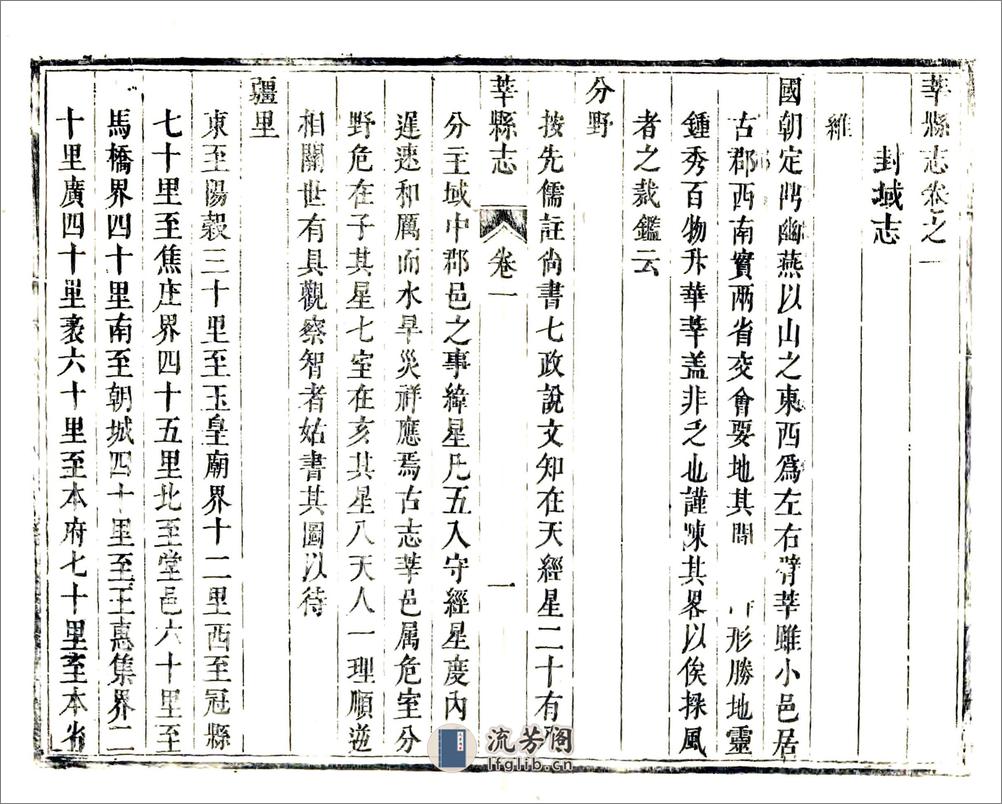 莘縣志卷之一
封域志
維
國朝定鼎幽燕以山之東西爲左右臂莘雖小邑居
古郡西南實兩省交會要地其間形勝地靈
鍾秀百物升華莘盖非乏也謹陳其畧以俟採風
者之裁鑑云
分野
按先儒註尚書七政說文知在天經星二十有
莘縣志
卷一
一
分主域中郡邑之事緯星凡五入守經星度內
遲速和厲而水旱災祥應焉古志莘邑属危室分
野危在子其星七室在亥其星八天人一理順逆
相關世有具觀察智者姑書其圖以待
疆里
東至陽穀三十里至玉皇廟界十二里西至冠縣
七十里至焦庄界四十五里北至堂邑六十里至
馬橋界四十里南至朝城四十里至王惠集界二
十里廣四十里袤六十里至本府七十里至本省
流芳阁
lfglib.cn